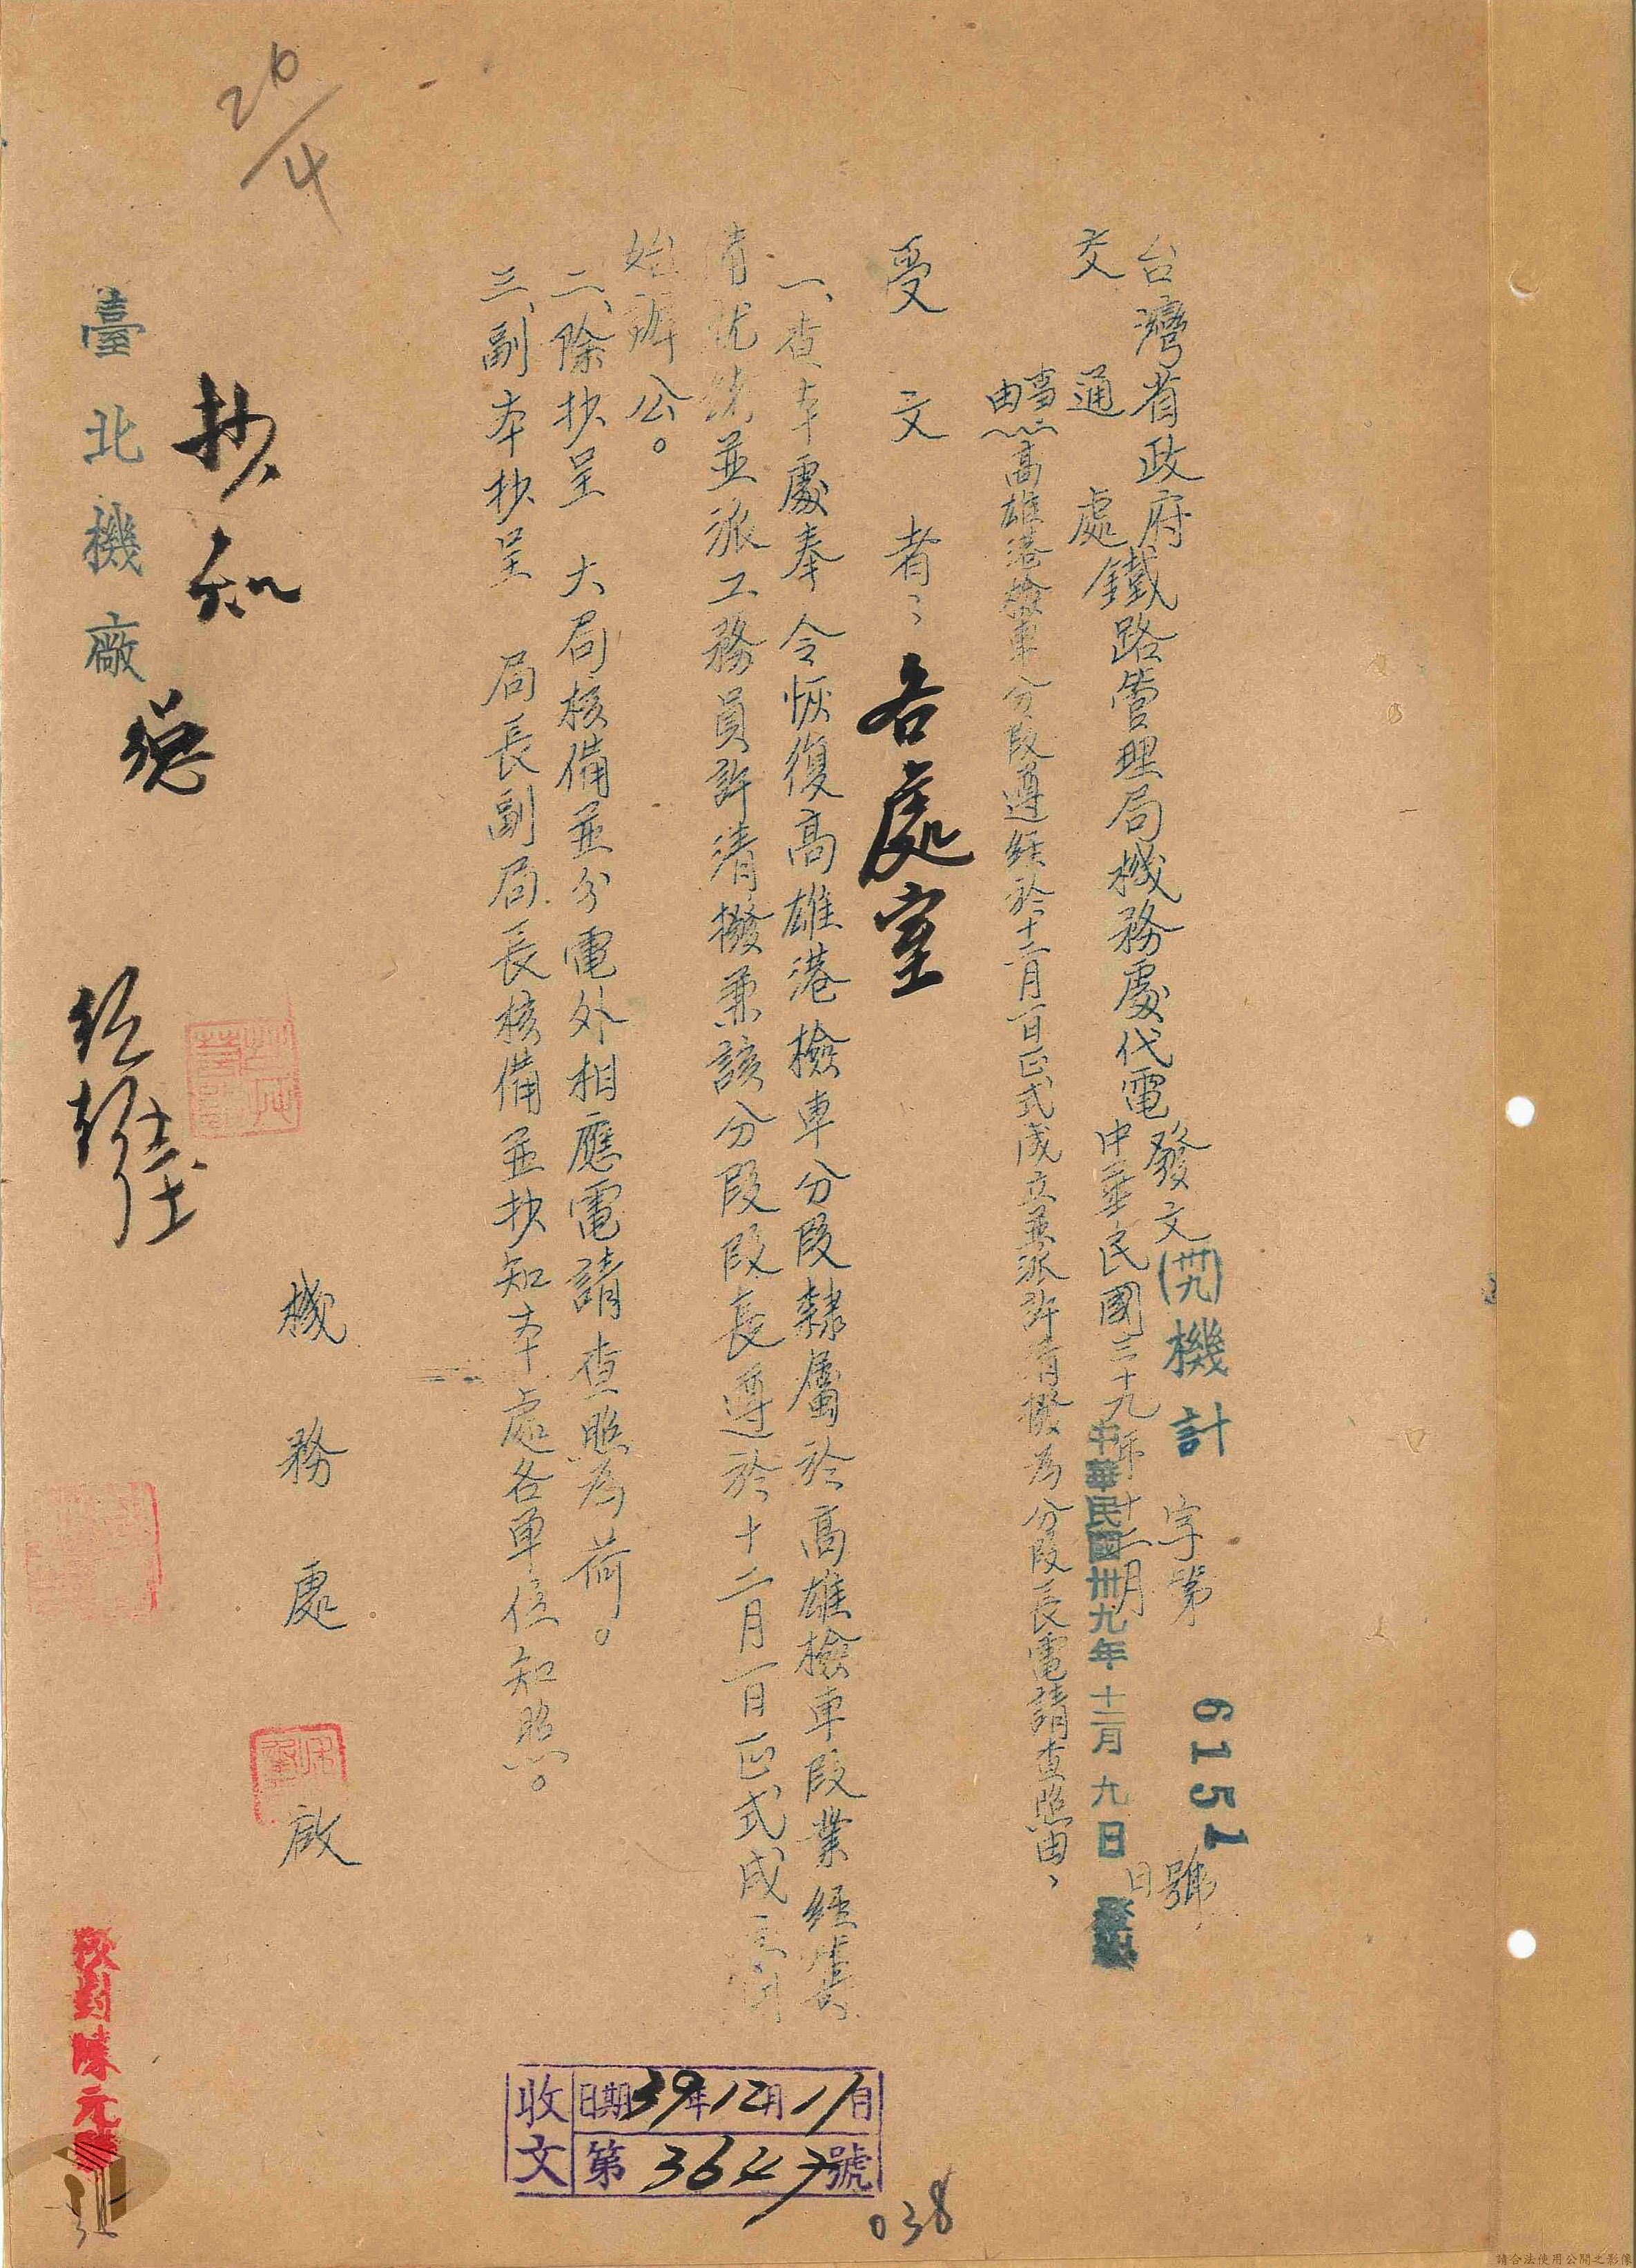 台灣省政府
交通處
鐵路管理局機務處代電
發文(卅九)機計字第6151號
中華民國三十九年十二月 日
中華民國卅九年十二月九日
事由:高雄港檢車分段遵經於十二月一日正式成立並派許清撥為分段長電請查照由、
受文者:各處室
一、查本處奉令恢復高雄港檢車分段隸屬於高雄檢車段業經籌
備就緒並派工務員許清撥兼該分段段長遵於十二月一日正式成立開
始辦公。
二、除抄呈 大局核備並分電外相應電請查照為荷。
三、副本抄呈 局長副局長核備並抄知本處各單位知照。
機務處啟
抄知
臺北機廠
校對陳元
收文
日期39年12月11日
第3647號
038
26/4
請合法使用公開之影像